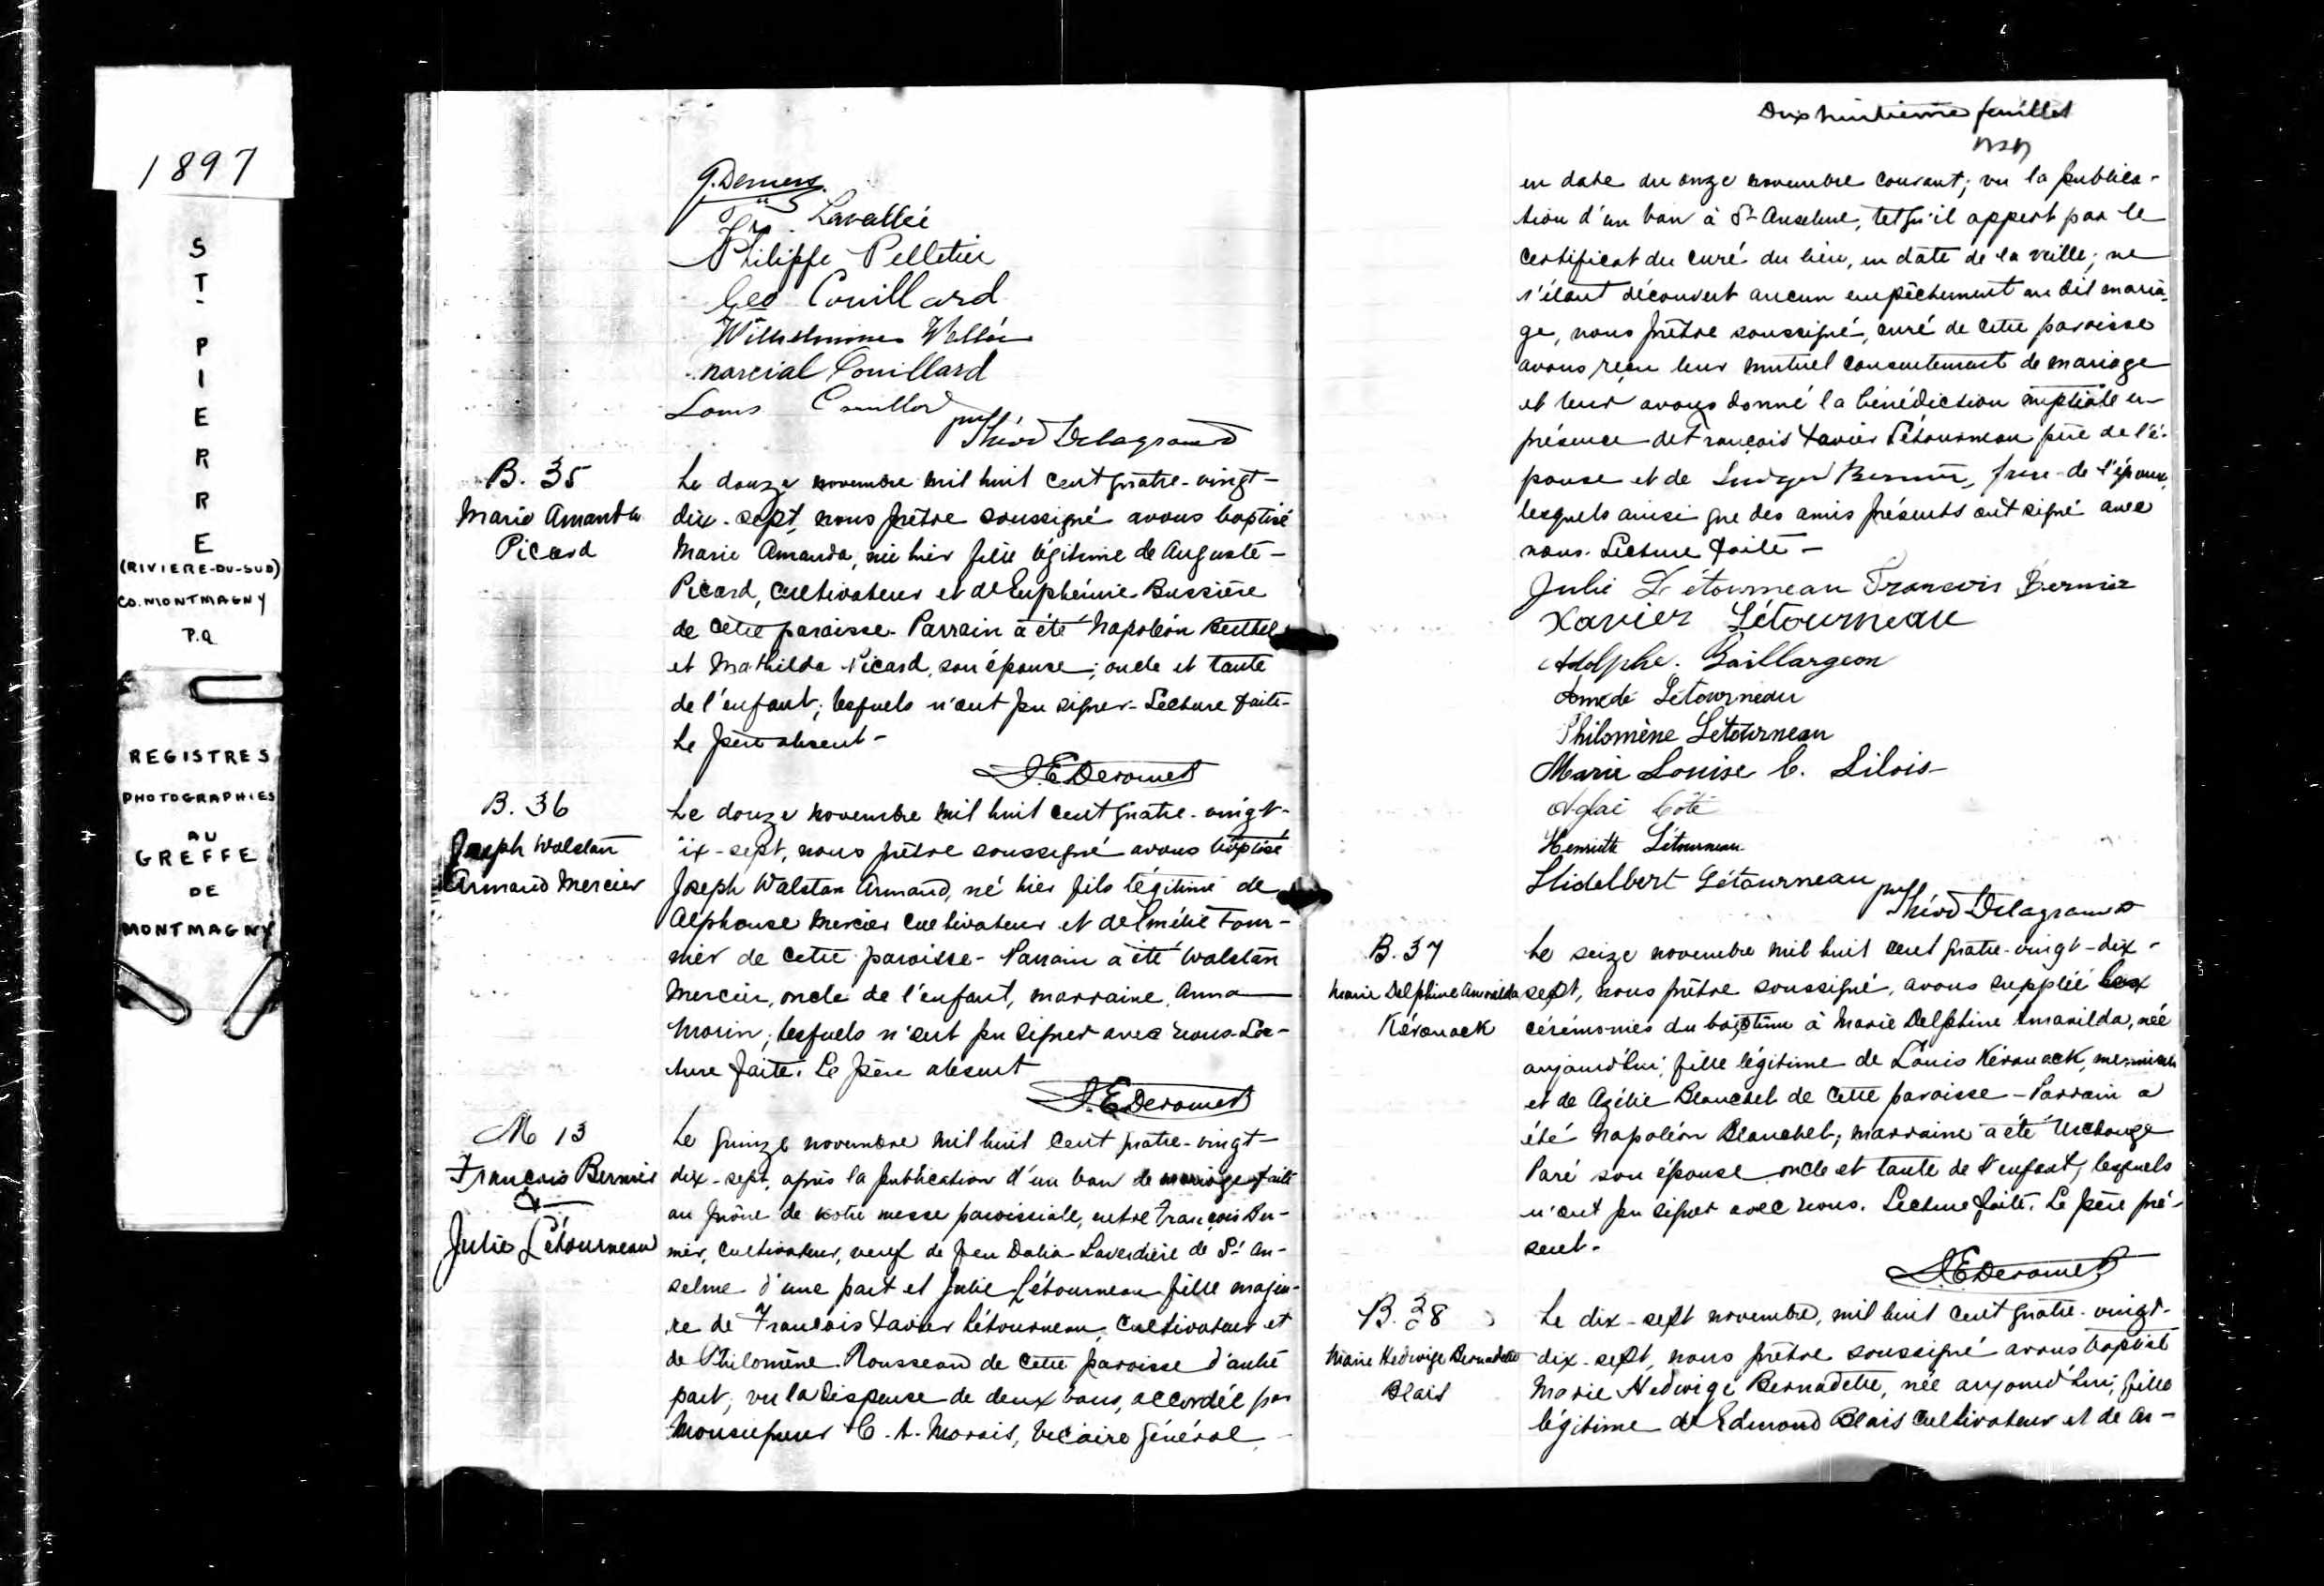 1897
ST-PIERRE
(RIVIERE-DU-SUD)
CO. MONTMAGNY
P.Q
REGISTRES
PHOTOGRAPHIES
AU
GREFFE
DE
MONTMAGNY
G. Demers
Lavallée
Philippe Pelletier
Geo Couillard
Wilhelmine Vallée
Narcial Couillard
Louis Couillard
Théod Delagrave
B. 35
Marie Amanda
Picard
Le douze novembre mil huit cent quatre-vingt-
dix-sept, nous prêtre soussigné avons baptisé
Marie Amanda, née hier fille légitime de Auguste
Picard, cultivateur et de Euphémie Bussière
de cette paroisse. Parrain a été Napoléon
et Mathilda Picard, son épouse; oncle et tante
de l'enfant; lesquels n'ont pu signer. Lecture faite.
Le père absent-
B. 36
Joseph Walstan
Armand Mercier
Le douze novembre mil huit cent quatre-vingt-
ix-sept, nous prêtre soussigné avons baptisé
Joseph Walstan Armand, né hier fils légitime de
Alphonse Mercier cultivateur et de Amélie Four-
nier de cette paroisse- Parrain a été Walstan
Mercier, oncle de l'enfant, marraine, Anna
Morin; lesquels n'ont pu signer avec nous. Lec-
ture faite. Le père absent
M 13
François Bernier
&
Julie Létourneau
Le quinze novembre mil huit cent quatre-vingt-
dix-sept, après la publication d'un ban de mariage faite
au prône de notre messe paroissiale, entre François Ber-
nier, cultivateur, veuf de feu Dalia Laverdière de St An-
selme d'une part et Julie Létourneau fille majeu-
re de François Xavier Létourneau, cultivateur et
de Philomène Rousseau de cette paroisse d'autre
part; vu la dispense de deux bans, accordée par
Monseigneur C. A. Marois, Vicaire général
Dix huitième feuillet
en date du onze novembre courant; vu la publica-
tion d'un ban à St Anselme, tel qu'il appert par le
certificat du curé du lieu, en date de la veille; ne
s'étant découvert aucun empêchement au dit maria-
ge, nous prêtre soussigné, curé de cette paroisse
avons reçu leur mutuel consentement de mariage
et leur avons donné la bénédiction nuptiale en
présence de François Xavier Létourneau père de l'é-
pouse et de Ludger Bernier, frère de l'époux,
lesquels ainsi que des amis présents ont signé avec
nous. Lecture faite-
Julie Létourneau Francois Bernier
Xavier Létourneau
Adolphe. Baillargeon
Amedé Létourneau
Philomène Létourneau
Marie Louise C. Lilois
Aglaé Coté
Henriette Létourneau
Hidelbert Létourneau
Théod Delagrave
B. 37
Marie Delphine Amarilda
Kérouack
Le seize novembre mil huit cent quatre-vingt-dix-
sept, nous prêtre soussigné, avons suppléé les
cérémonies du baptême à Marie Delphine Amarilda, née
aujourd'hui, fille légitime de Louis Kérouack, menuisier
et de Azélie Blanchet de cette paroisse - Parrain a
été Napoléon Blanchet; marraine a été
Paré son épouse oncle et tante de l'enfant; lesquels
n'ont pu signer avec nous. Lecture faite. Le père pré-
sent.
B. 38
Marie Hedwige Bernadette
Blais
Le dix-sept novembre, mil huit cent quatre-vingt-
dix-sept, nous prêtre soussigné avons baptisé
Marie Hedwige Bernadette, née aujourd'hui, fille
légitime de Edmond Blais cultivateur et de An-